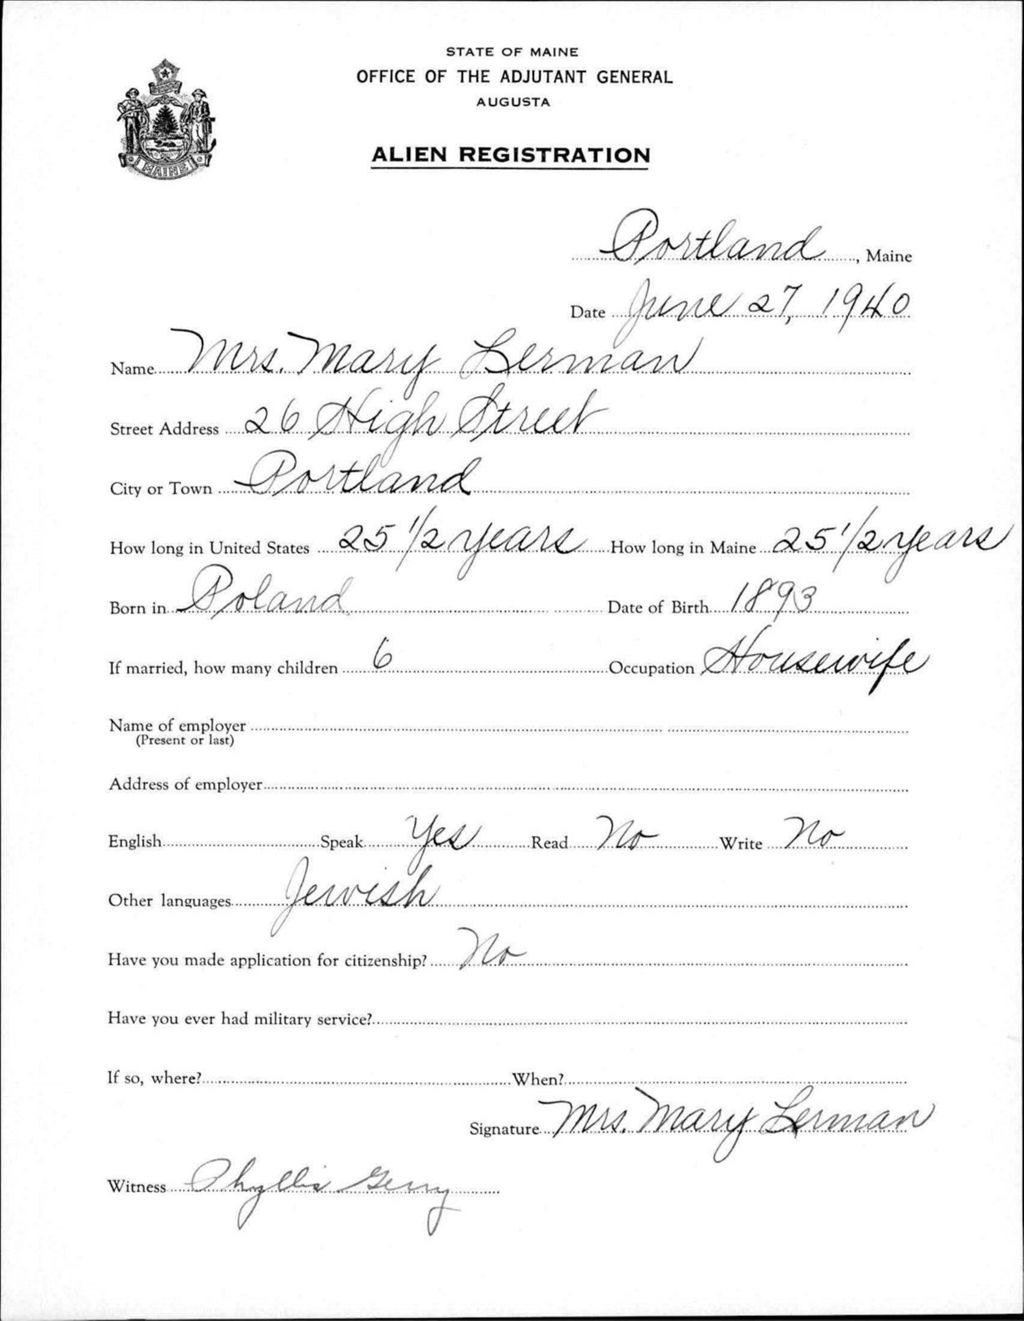 STATE OF MAINE
OFFICE OF THE ADJUTANT GENERAL
AUGUSTA
ALIEN REGISTRATION
MAINE
Portland, Maine
Date June 27, 1940
Name Mrs. Mary Lerman
Street Address 26 High Street
City or Town Portland
How long in United States 25 1/2 years How long in Maine 25 1/2 years
Born in Poland Date of Birth 1893
If married, how many children 6 Occupation Housewife
Name of employer
(Present or last)
Address of employer
English Speak Yes Read No Write No
Other languages Jewish
Have you made application for citizenship? No
Have you ever had military service?
If so, where? When?
Signature Mrs. Mary Lerman
Witness Phyllis Gerry